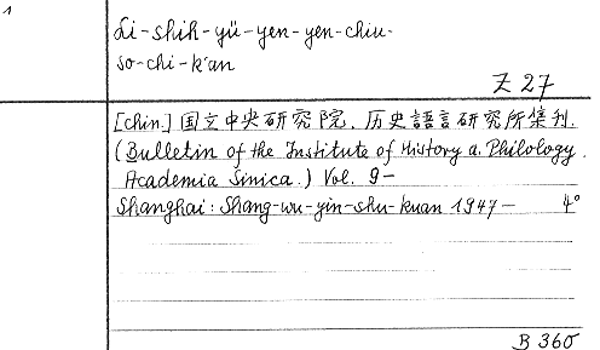 1
Li-shih-yü-yen-yen-chiu-
so-chi-k'an
Z 27
[chin.] 国立中央研究院. 历史語言研究所集刊.
(Bulletin of the Institute of History a. Philology.
Academia Sinica.) Vol. 9-
Shanghai: Shang-wu-yin-shu-kuan 1947- 4°
B 360